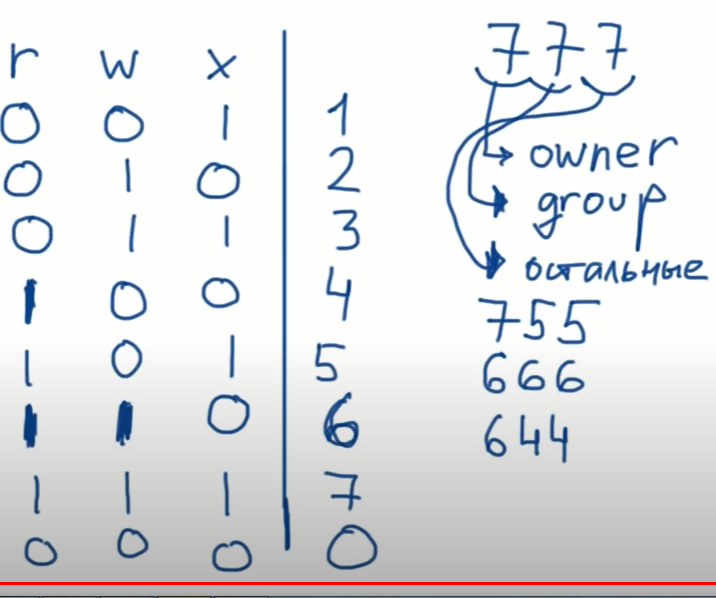 r w x
0 0 1 1
0 1 0 2
0 1 1 3
1 0 0 4
1 0 1 5
1 1 0 6
1 1 1 7
0 0 0 0
777
owner
group
остальные
755
666
644